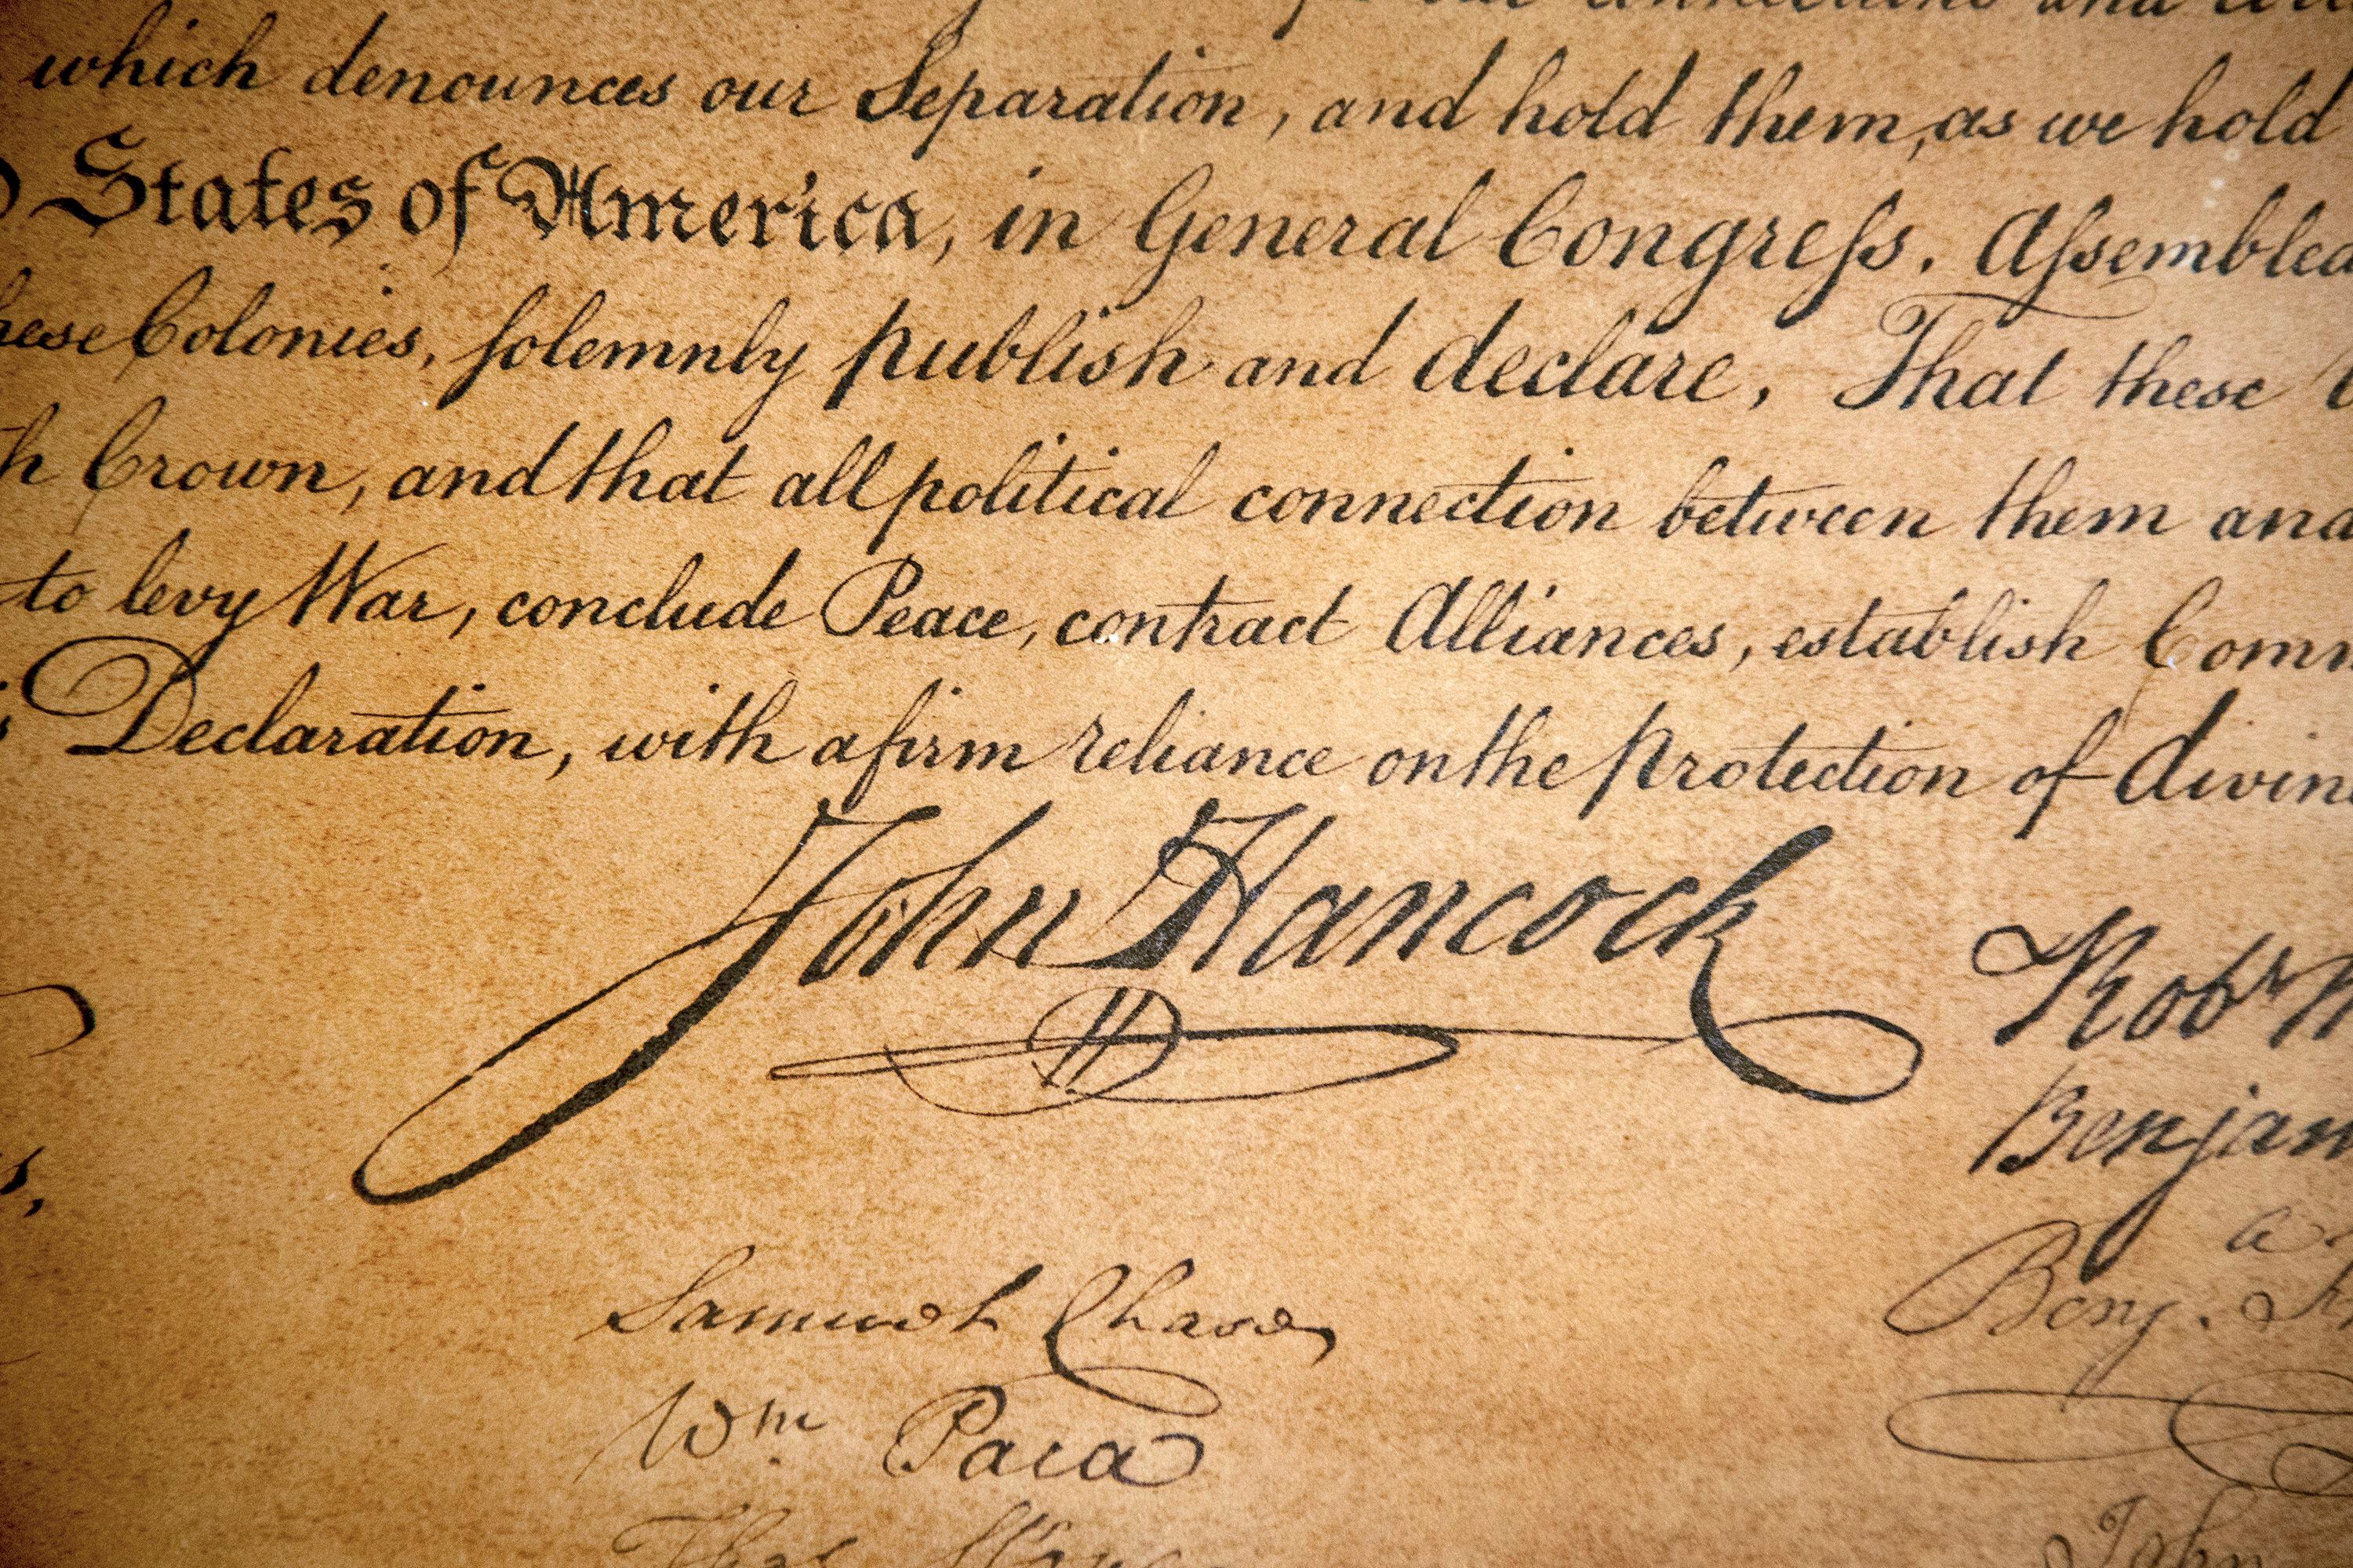 which denounces our Separation, and hold them, as we hold
States of America, in General Congress, Assembled
these Colonies, solemnly publish and declare, That these
Crown, and that all political connection between them and
to levy War, conclude Peace, contract Alliances, establish Comm
Declaration, with a firm reliance on the protection of divine
John Hancock
Robt M
Benjam
Benj. Fr
Samuel Chase
Wm. Paca
Thos. Stone
John